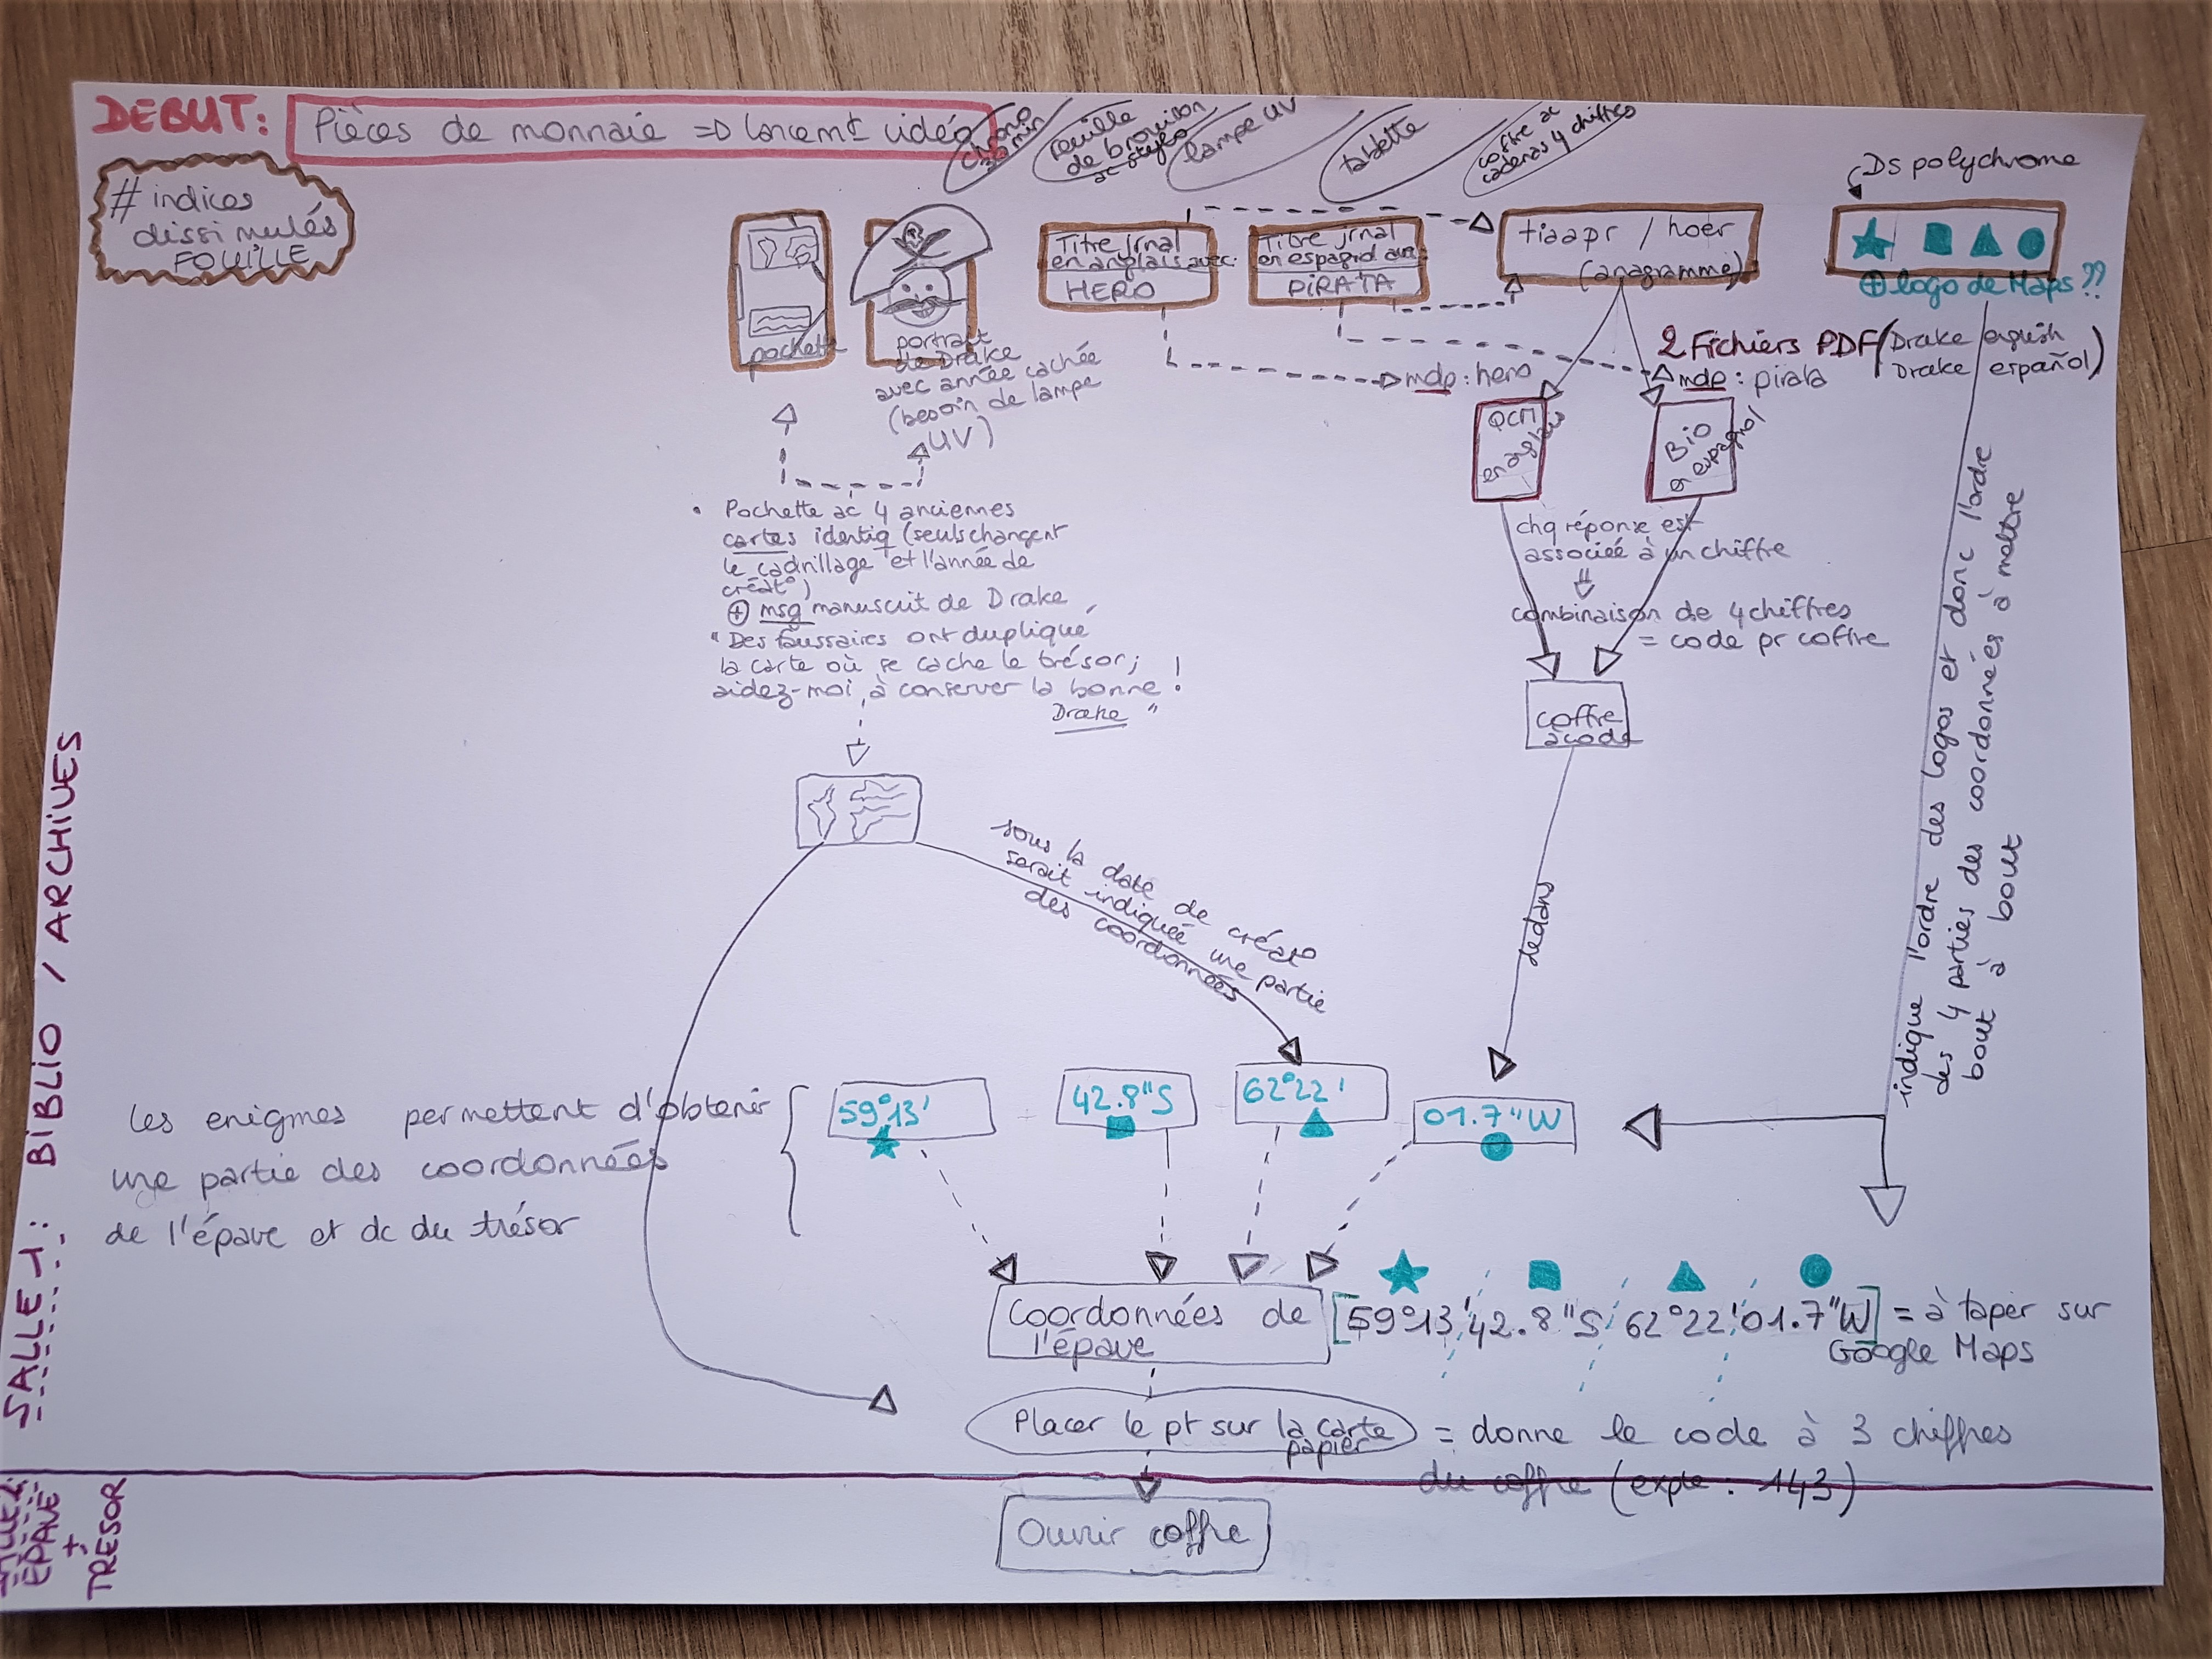 DEBUT:
Pièces de monnaie => lancemt vidéo
chrono
30 min
feuille
de brouillon
ac stylo
lampe UV
tablette
coffre ac
cadenas 4 chiffres
# indices
dissimulés
FOUILLE
pochette
portrait
de Drake
avec année cachée
(besoin de lampe
UV)
Titre jrnal
en anglais avec:
HERO
Titre jrnal
en espagnol avec:
PiRATA
tiaapr / hoer
(anagramme)
Ds polychrome
⊕ logo de Maps ??
2 Fichiers PDF (Drake english
Drake español)
mdp : hero
mdp : pirata
QCM
en anglais
Bio
en espagnol
• Pochette ac 4 anciennes
cartes identiq (seuls changent
le cadrillage et l'année de
créat°)
⊕ msg manuscrit de Drake
" Des faussaires ont dupliqué
la carte où se cache le trésor ;
aidez-moi à conserver la bonne !
Drake "
chq réponse est
associée à un chiffre
combinaison de 4 chiffres
= code pr coffre
coffre
à code
dedans
sous la date de créat°
serait indiquée une partie
des coordonnées
indique l'ordre des logos et donc l'ordre
des 4 parties des coordonnées à mettre
bout à bout
SALLE 1 : BiBLiO / ARCHiVES
Les enigmes permettent d'obtenir
une partie des coordonnées
de l'épave et dc du trésor
59°13'
42.8"S
62°22'
01.7"W
Coordonnées de
l'épave
[59°13'42.8"S 62°22'01.7"W] = à taper sur
Google Maps
Placer le pt sur la carte
papier
= donne le code à 3 chiffres
du coffre (exple : 143)
ÉPAVE
+
TRESOR
Ouvrir coffre